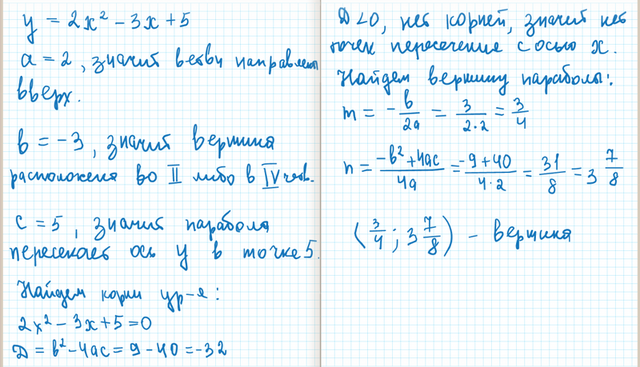 y = 2x² - 3x + 5
a = 2, значит ветви направлены
вверх.
b = -3, значит вершина
расположена во II либо в IV четв.
c = 5, значит парабола
пересекает ось y в точке 5.
Найдем корни ур-я:
2x² - 3x + 5 = 0
D = b² - 4ac = 9 - 40 = -32
D < 0, нет корней, значит нет
точек пересечение с осью x.
Найдем вершину параболы:
m = -b/2a = 3/2·2 = 3/4
n = -b² + 4ac/4a = -9 + 40/4·2 = 31/8 = 3 7/8
(3/4; 3 7/8) - вершина